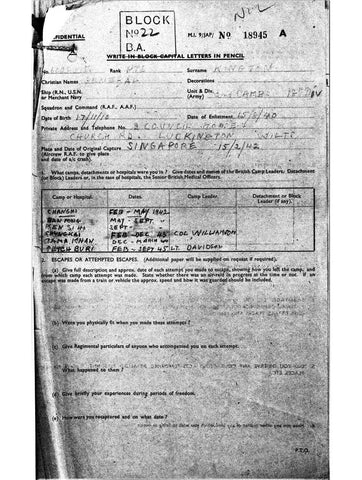 BLOCK
No 22
B.A.
NIL
FIDENTIAL
M.I. 9/JAP/ No 18945 A
WRITE IN BLOCK CAPITAL LETTERS IN PENCIL
No. Rank PTE Surname
Christian Names Decorations
Ship (R.N., U.S.N. or Merchant Navy Unit & Div. (Army) CAMBS 18 DIV
Squadron and Command (R.A.F., A.A.F.)
Date of Birth 17/11/10 Date of Enlistment /40
Private Address and Telephone No. 2 COUNCIL HOUSES
CHURCH RD. LUCKINGTON WILTS
Place and Date of Original Capture SINGAPORE 15/2/42
(Aircrew R.A.F. to give place
and date of a/c crash).
What camps, detachments or hospitals were you in? Give dates and names of the British Camp Leaders, Detachment
(or Block) Leaders or, in the case of hospitals, the Senior British Medical Officers.
Camp or Hospital. Dates. Camp Leader. Detachment or Block Leader (if any).
CHANGHI FEB - MAY 1942
BAN PONG MAY - SEPT
SEPT -
CHUNGKAI FEB - DEC 43 COL WILLIAMSON
TAMARKHAN DEC - MARCH
PETCHBURI FEB - SEPT 45 LT. DAVIDSON
2. ESCAPES OR ATTEMPTED ESCAPES. (Additional paper will be supplied on request if required).
(a) Give full description and approx. date of each attempt you made to escape, showing how you left the camp, and
from which camp each attempt was made. State whether there was an air-raid in progress at the time or not. If an
escape was made from a train or vehicle the approx. speed and how it was guarded should be included.
(b) Were you physically fit when you made these attempts?
(c) Give Regimental particulars of anyone who accompanied you on each attempt.
What happened to them?
(d) Give briefly your experiences during periods of freedom.
(e) How were you recaptured and on what date?
P.T.O.